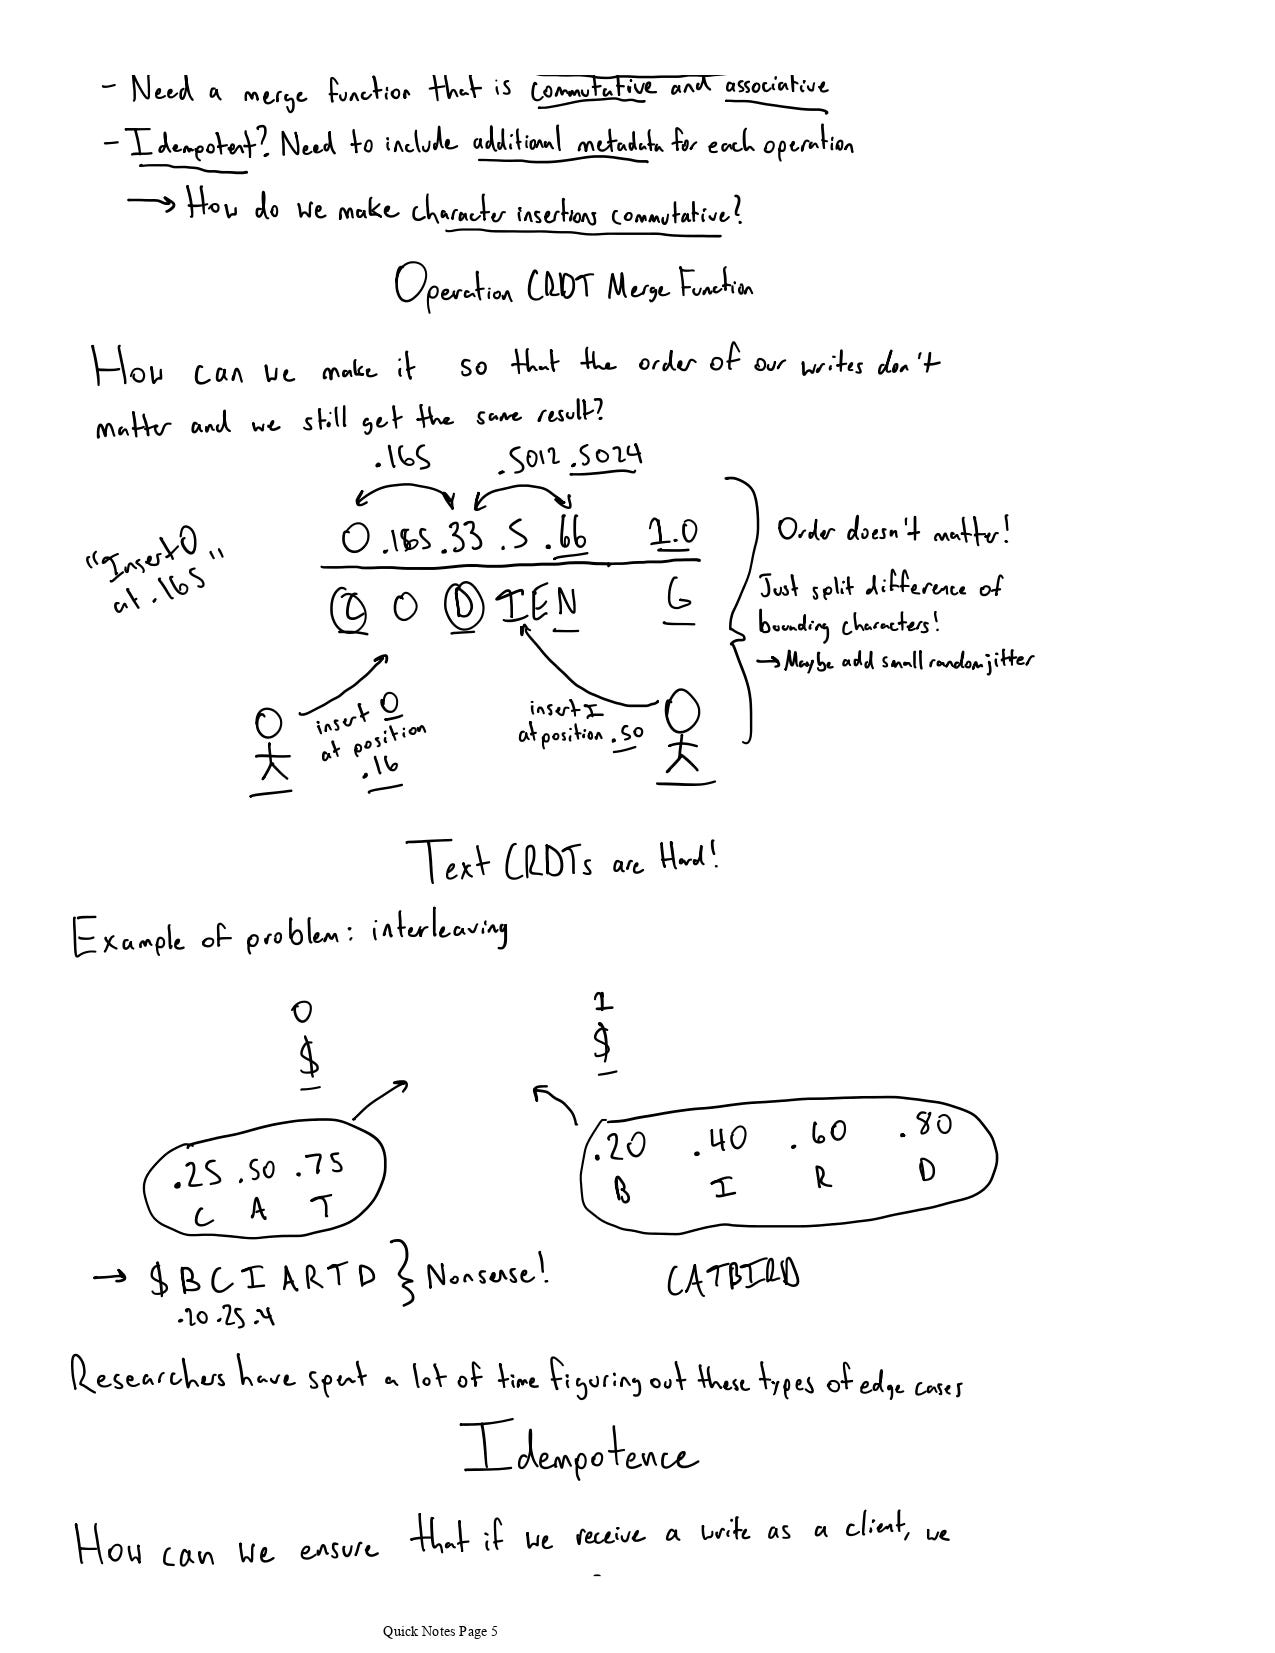 - Need a merge function that is commutative and associative
- Idempotent? Need to include additional metadata for each operation
→ How do we make character insertions commutative?
Operation CRDT Merge Function
How can we make it so that the order of our writes don't
matter and we still get the same result?
.165 .5012 .5024
0 .165 .33 .5 .66 1.0
C O D I E N G
"Insert O
at .165"
Order doesn't matter!
Just split difference of
bounding characters!
→ Maybe add small random jitter
insert O
at position
.16
insert I
at position .50
Text CRDTs are Hard!
Example of problem: interleaving
0 1
$ $
.25 .50 .75
C A T
.20 .40 .60 .80
B I R D
→ $ B C I A R T D } Nonsense!
.20 .25 .4
CATBIRD
Researchers have spent a lot of time figuring out these types of edge cases
Idempotence
How can we ensure that if we receive a write as a client, we
Quick Notes Page 5